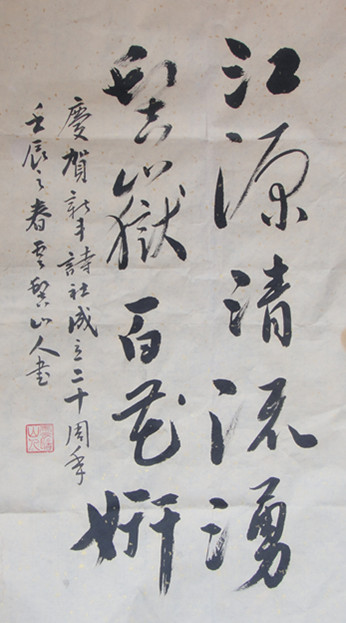 江源清流湧
髻嶽百花妍
慶賀新丰詩社成立二十周年
壬辰之春雲髻山人書